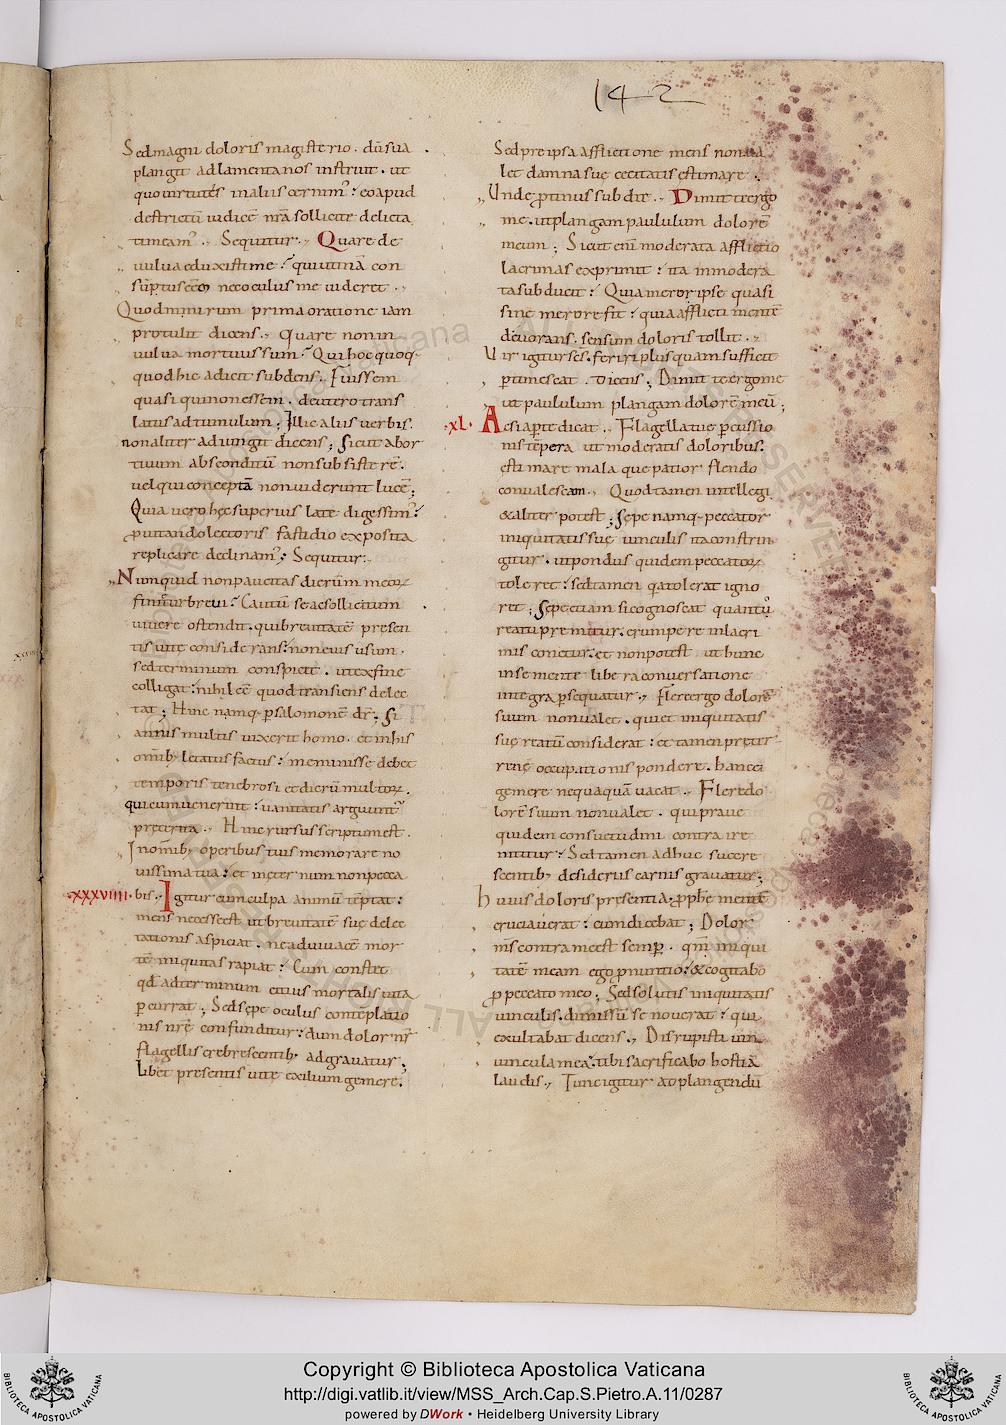 142
Sed magni doloris magisterio . dũ sua
plangit ad lamenta nos instruit . ut
quo virtutes in aliis cernimꝰ : eo apud
destrictũ iudicẽ nr̃a sollicite delicta
timeamꝰ . Sequitur . Quare de
vulva eduxisti me ? qui utinã con
sũptus eẽ ne oculus me videret .
Quod nimirum prima oratione iam
protulit dicens . Quare non in
vulva mortuus sum ? Qui hoc quoq
quod hic adicit subdens . Fuissem
quasi qui non essem . de utero trans
latus ad tumulum . Illic aliis verbis
non aliter adiungit dicens ; Sicut abor
tivum absconditũ non subsisterẽ .
vel qui conceptã non viderunt lucẽ ;
Quia vero hęc superius late digessimꝰ :
vitando lectoris fastidio exposita
replicare declinamꝰ ; Sequitur .
Numquid non paucitas dierũm meoꝝ
finitur brevi ? Cautũ se ac sollicitum
vivere ostendit . qui brevitatẽ presen
tis vite considerans : non eius usum .
sed terminum conspicit . ut ex fine
colligat : nihil eẽ quod transiens delec
tat ; Hinc namq p salomonẽ dr̃ ; Si
annis multis vixerit homo . et in his
omĩb letatus factus : meminisse debet
temporis tenebrosi et dierũ multoꝝ .
qui cum venerint : vanitatis arguunt
preterita . Hinc rursus scriptum est .
In omĩb operibus tuis memorare no
vissima tua : et in eternum non pecca
xxxviiii . bis . Igitur cum culpa animũ tẽptat :
mens necesse est ut brevitatẽ suę delec
tationis aspiciat . ne ad vivacẽ mor
tẽ iniquitas rapiat : Cum constet
qđ ad terminum citius mortalis vita
pcurrat . Sed sepe oculus contẽplatio
nis nr̃ę confunditur : dum dolor nr̃
flagellis crebrescentib adgravatur ;
Libet presentis vite exilium gemere :
Sed pre ipsa afflictione mens non va
let damna sue cecitatis estimare .
Unde protinus subdit . Dimitte ergo
me . ut plangam paululum dolorẽ
meum ; Sicut enĩ moderata afflictio
lacrimas exprimit : ita inmodera
ta subducit : Quia meror ipse quasi
sine merore fit : quia afflicti mentẽ
devorans . sensum doloris tollit .
Vir igitur scs . feriri plus quam sufficit
ptimescat . dicens ; Dimitte ergo me
ut paululum plangam dolorẽ meũ ;
xl . Ac si apte dicat . Flagella tue pcussio
nis tẽpera . ut moderatis doloribus .
estimare mala que patior flendo
convalescam . Quod tamen intellegi
&aliter potest ; Sepe namq peccator
iniquitatis suę vinculis ita constrin
gitur . ut pondus quidem peccatoꝝ
toleret : sed tamen q̃a tolerat igno
ret ; Sepe etiam si cognoscat quantũ
reatu premitur . erumpere in lacri
mis conetur . et non potest . ut hunc
in se mente libera conversatione
integra psequatur . Flere ergo dolorẽ
suum non valet . qui et iniquitatis
suę reatũ considerat : et tamen preter
renę occupationis pondere . hanc ei
gemere nequaquã vacat . Flere do
lorẽ suum non valet . qui prave
quidem consuetudini contra ire
nititur : Sed tamen adhuc succre
scentib desideriis carnis gravatur ;
Huius doloris presentia . pphẽ mentẽ
cruciaverat : cum dicebat ; Dolor
ms contra me est semp . qm̃ iniqui
tatẽ meam ego pnuntio : & cogitabo
p peccato meo ; Sed solutis iniquitatis
vinculis . dimissũ se noverat : qui
exultabat dicens . Disrupisti
vincula mea : tibi sacrificabo hostiã
laudis . Tunc igitur ad plangendũ
Copyright © Biblioteca Apostolica Vaticana
http://digi.vatlib.it/view/MSS_Arch.Cap.S.Pietro.A.11/0287
powered by DWork • Heidelberg University Library
BIBLIOTECA APOSTOLICA VATICANA
BIBLIOTECA APOSTOLICA VATICANA